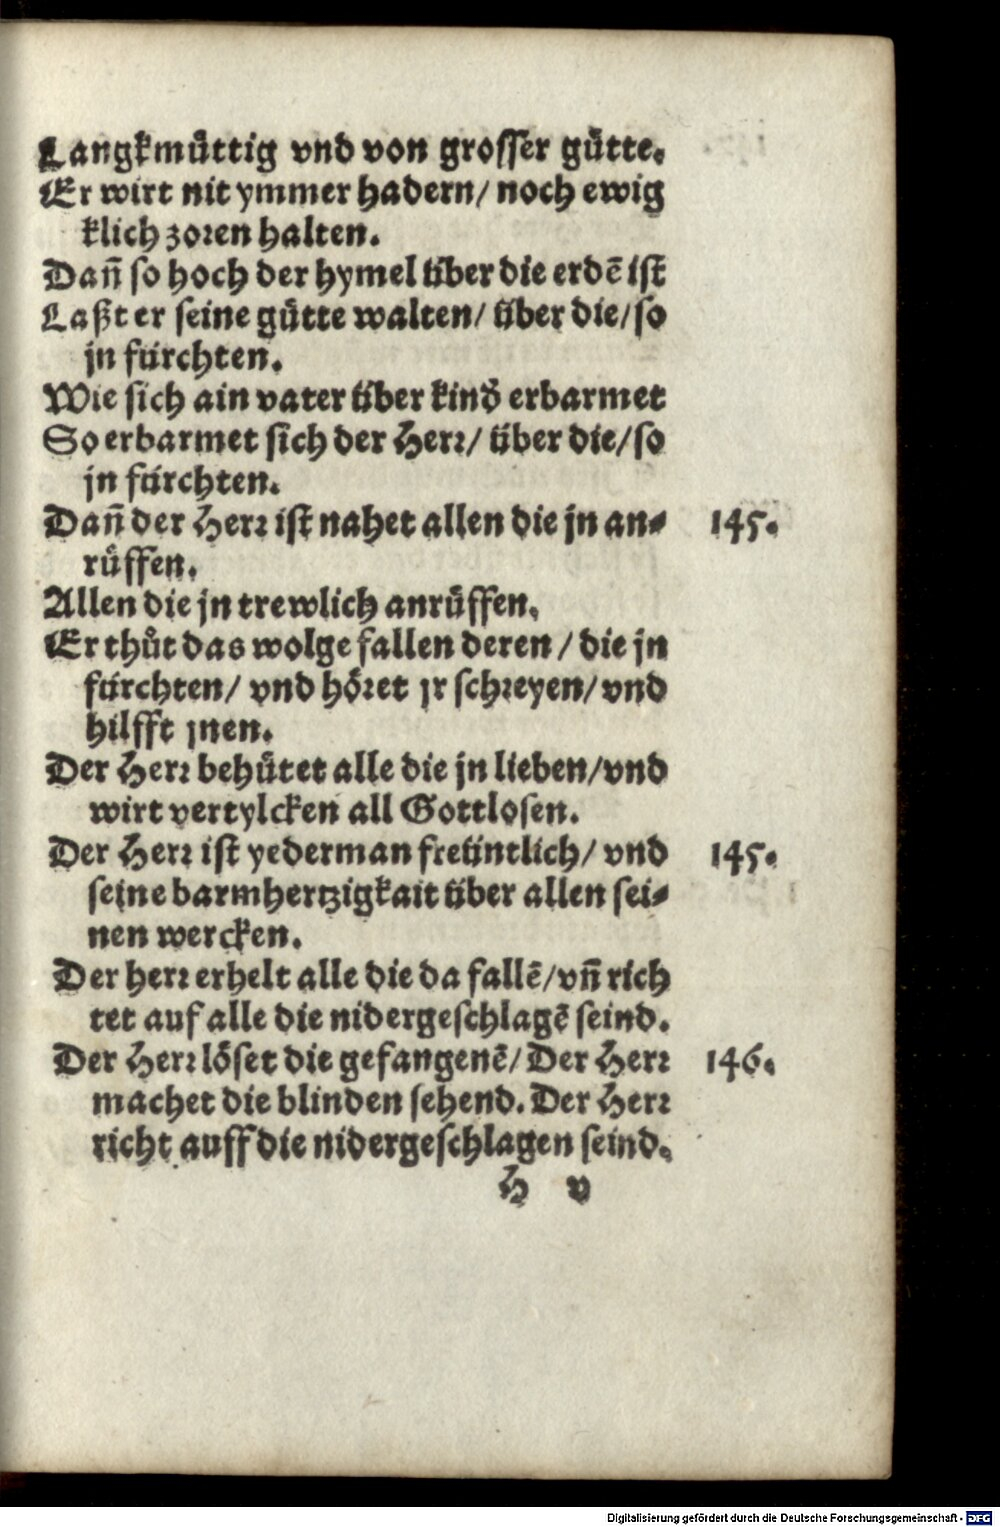 Langkmůttig vnd von grosser gůtte.
Er wirt nit ymmer hadern/ noch ewig
klich zoren halten.
Dañ so hoch der hymel über die erdē ist
Laßt er seine gůtte walten/ über die/ so
jn fürchten.
Wie sich ain vater über kind̕ erbarmet
So erbarmet sich der Herr/ über die/ so
jn fürchten.
Dañ der Herr ist nahet allen die jn an⸗ 145.
růffen.
Allen die jn trewlich anrůffen.
Er thůt das wolgefallen deren / die jn
fürchten/ vnd höret jr schreyen/ vnd
hilfft jnen.
Der Herr behůtet alle die jn lieben/ vnd
wirt vertylcken all Gottlosen.
Der Herr ist yederman freüntlich/ vnd 145.
seine barmhertzigkait über allen sei⸗
nen wercken.
Der herr erhelt alle die da fallē/ vñ rich
tet auf alle die nidergeschlagē seind.
Der Herr löset die gefangenē/ Der Herr 146.
machet die blinden sehend. Der Herr
richt auff die nidergeschlagen seind.
H v
Digitalisierung gefördert durch die Deutsche Forschungsgemeinschaft - DFG